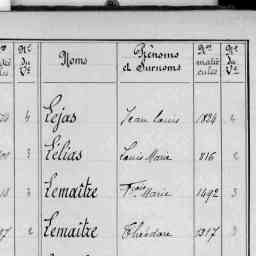 Nº du Vº Noms Prénoms et Surnoms Nos matricules Nº du Vº
4 Lejas Jean Louis 1824 4
3 Lélias Louis Marie 816 2
3 Lemaître Fçois Marie 1492 3
2 Lemaître Théodore 1317 3